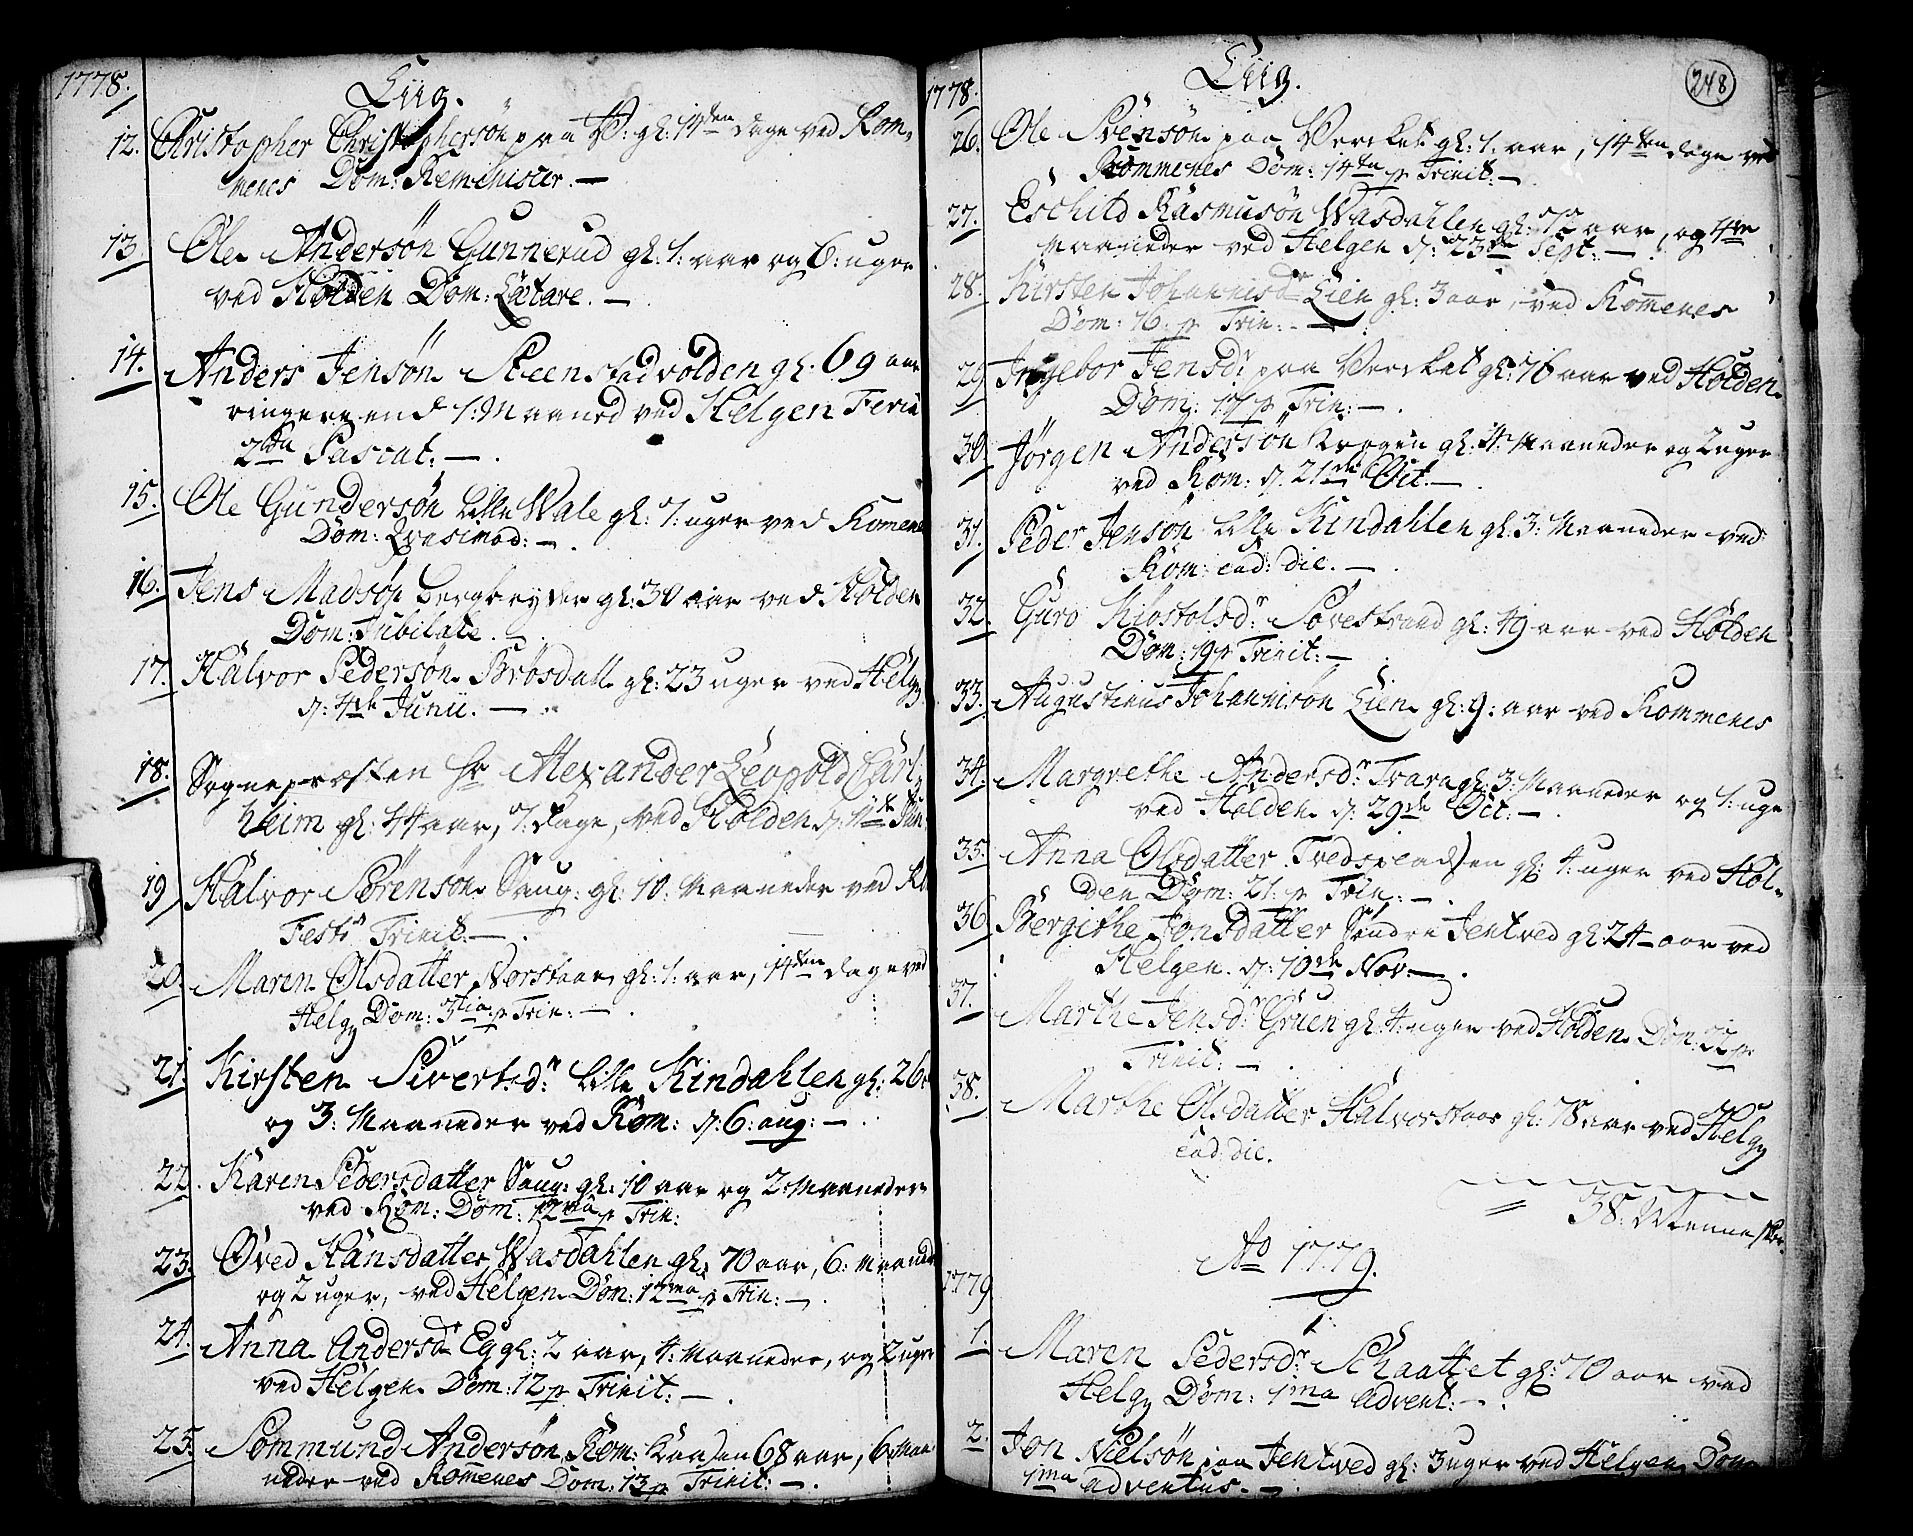 1778.
Liig.
12. Christopher Christophersön paa V: gl: 14den dage ved Rom-
menes Dom: Reminiscer. —
13. Ole Andersön Gunnerud gl: 1: aar og 6: uger
ved Holden Dom: Lætare. —
14. Anders Jensön Steenstadvolden gl. 69 aar
ringere end 1: Maaned ved Helgen Feria
2da Pascat: —.
15. Ole Gundersön Lille Wale gl: 7: uger ved Romenes
Dom: Qvasimod: —.
16. Jens Madsön bergbryder gl: 30 aar ved Holden
Dom: Jubilate. —
17. Halvor Pedersön Brösdall gl: 23 uger ved Helg
d: 4de Junii. —.
18. Sognepræsten Hr Alexander Leopold Carl
Heim gl: 44 aar, 7: dage, ved Holden d: 11te Jun
19. Halvor Sörensön Saug: gl: 10: Maaneder ved Ro
Festo Trinit: —.
20. Maren Olsdatter Norstaar gl: 1: aar, 14den dage ved
Helg Dom: 3tia p Trin: —.
21. Kirsten Sivertsdr: Lille Kindahlen gl: 26
og 3: Maaneder ved Rom: d: 6: aug: —.
22. Karen Pedersdatter Saug: gl: 10 aar og 2: Maaneder
ved Rom: Dom: 12ma p Trin:
23. Öved Hansdatter Wasdahlen gl: 70 aar, 6: Maaneder
og 2 uger, ved Helgen Dom: 12ma p Trin: —.
24. Anna Andersdr Eg gl: 2 aar, 4: Maaneder, og 2 uger
ved Helgen Dom: 12 p Trinit: —.
25. Sommund Andersön Rom: 68 aar, 6 Maa
neder ved Romenes Dom: 13 p Trinit: —.
248
1778.
Liig.
26. Ole Svensön paa Verket gl: 1: aar, 14ten dage ved
Rommenes Dom: 14ten p Trinit: —.
27. Eschild Rasmusön Wasdahlen gl: 72 aar, og 4re
Maaneder ved Helgen d: 23de Sept: —.
28. Kirsten Johannisdr Lien gl: 3 aar, ved Romenes
Dom: 16: p Trin: —.
29. Ingebor Jensdr: paa Verket gl: 76 aar ved Holden
Dom: 17 p Trin: —.
30. Jörgen Andersön Krogen gl: 4: Maaneder og 2 uger
ved Rom: d: 21de Oct: —.
31. Peder Jensön Lille Kindahlen gl: 3: Maaneder ved
Rom: ead: die. —.
32. Guro Kiostolsdr: Sovestrand gl: 49 aar ved Holden
Dom: 19 p Trinit: —.
33. Augustinus Johannisön Lien gl: 9: aar ved Rommenes
34. Margrethe Andersdr: Tvara gl: 3: Maaneder og 1: uge
ved Holden d: 29de Oct: —.
35. Anna Olsdatter gl: 4: uger ved Hol-
den Dom: 21: p Trin: —.
36. Bergithe Jonsdatter Söndre Jentved gl: 24 aar ved
Helgen d: 10de Nov: —.
37. Marthe Jensdr: Gruen gl: 4: uger ved Holden Dom: 22 p:
Trinit: —.
38. Marthe Olsdatter Halvorstaar gl: 78 aar ved Helg
ead: die.
38: Mennesker.
Ao 1779.
1779
1. Maren Pedersdr: Schaattet gl: 70 aar ved
Helg Dom: 1ma advent: —.
2. Jon Nielsön paa Jentved gl: 3 uger ved Helgen Dom
1ma adventus. —